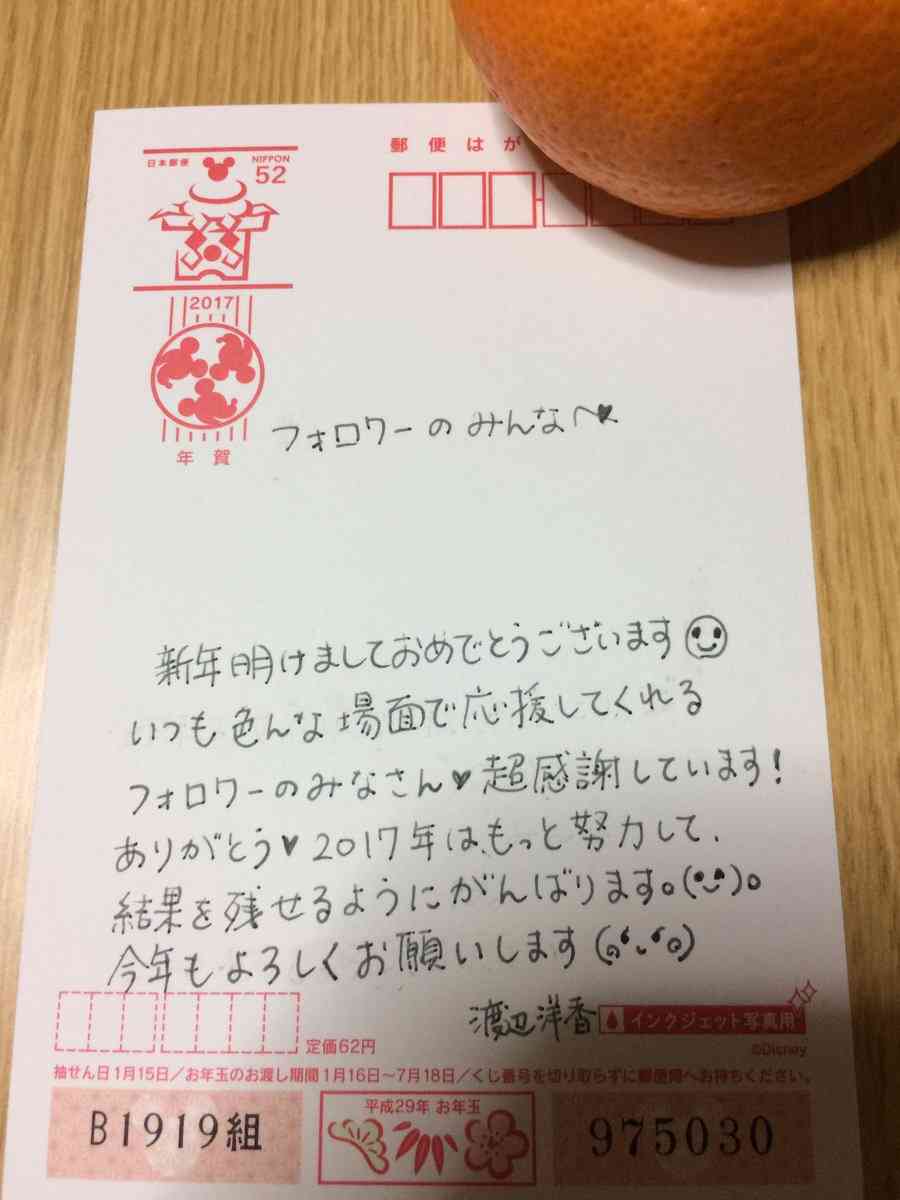 郵便はが
日本郵便
NIPPON
52
2017
年賀
フォロワーのみんなへ♥
新年明けましておめでとうございます
いつも色んな場面で応援してくれる
フォロワーのみなさん♥超感謝しています!
ありがとう♥2017年は、もっと努力して、
結果を残せるようにがんばります。(•ᴗ•)。
今年もよろしくお願いします(๑•ᴗ•๑)
渡辺洋香
インクジェット写真用
©Disney
定価62円
抽せん日1月15日/お年玉のお渡し期間1月16日〜7月18日/くじ番号を切り取らずに郵便局へお持ちください。
平成29年 お年玉
B1919組
975030